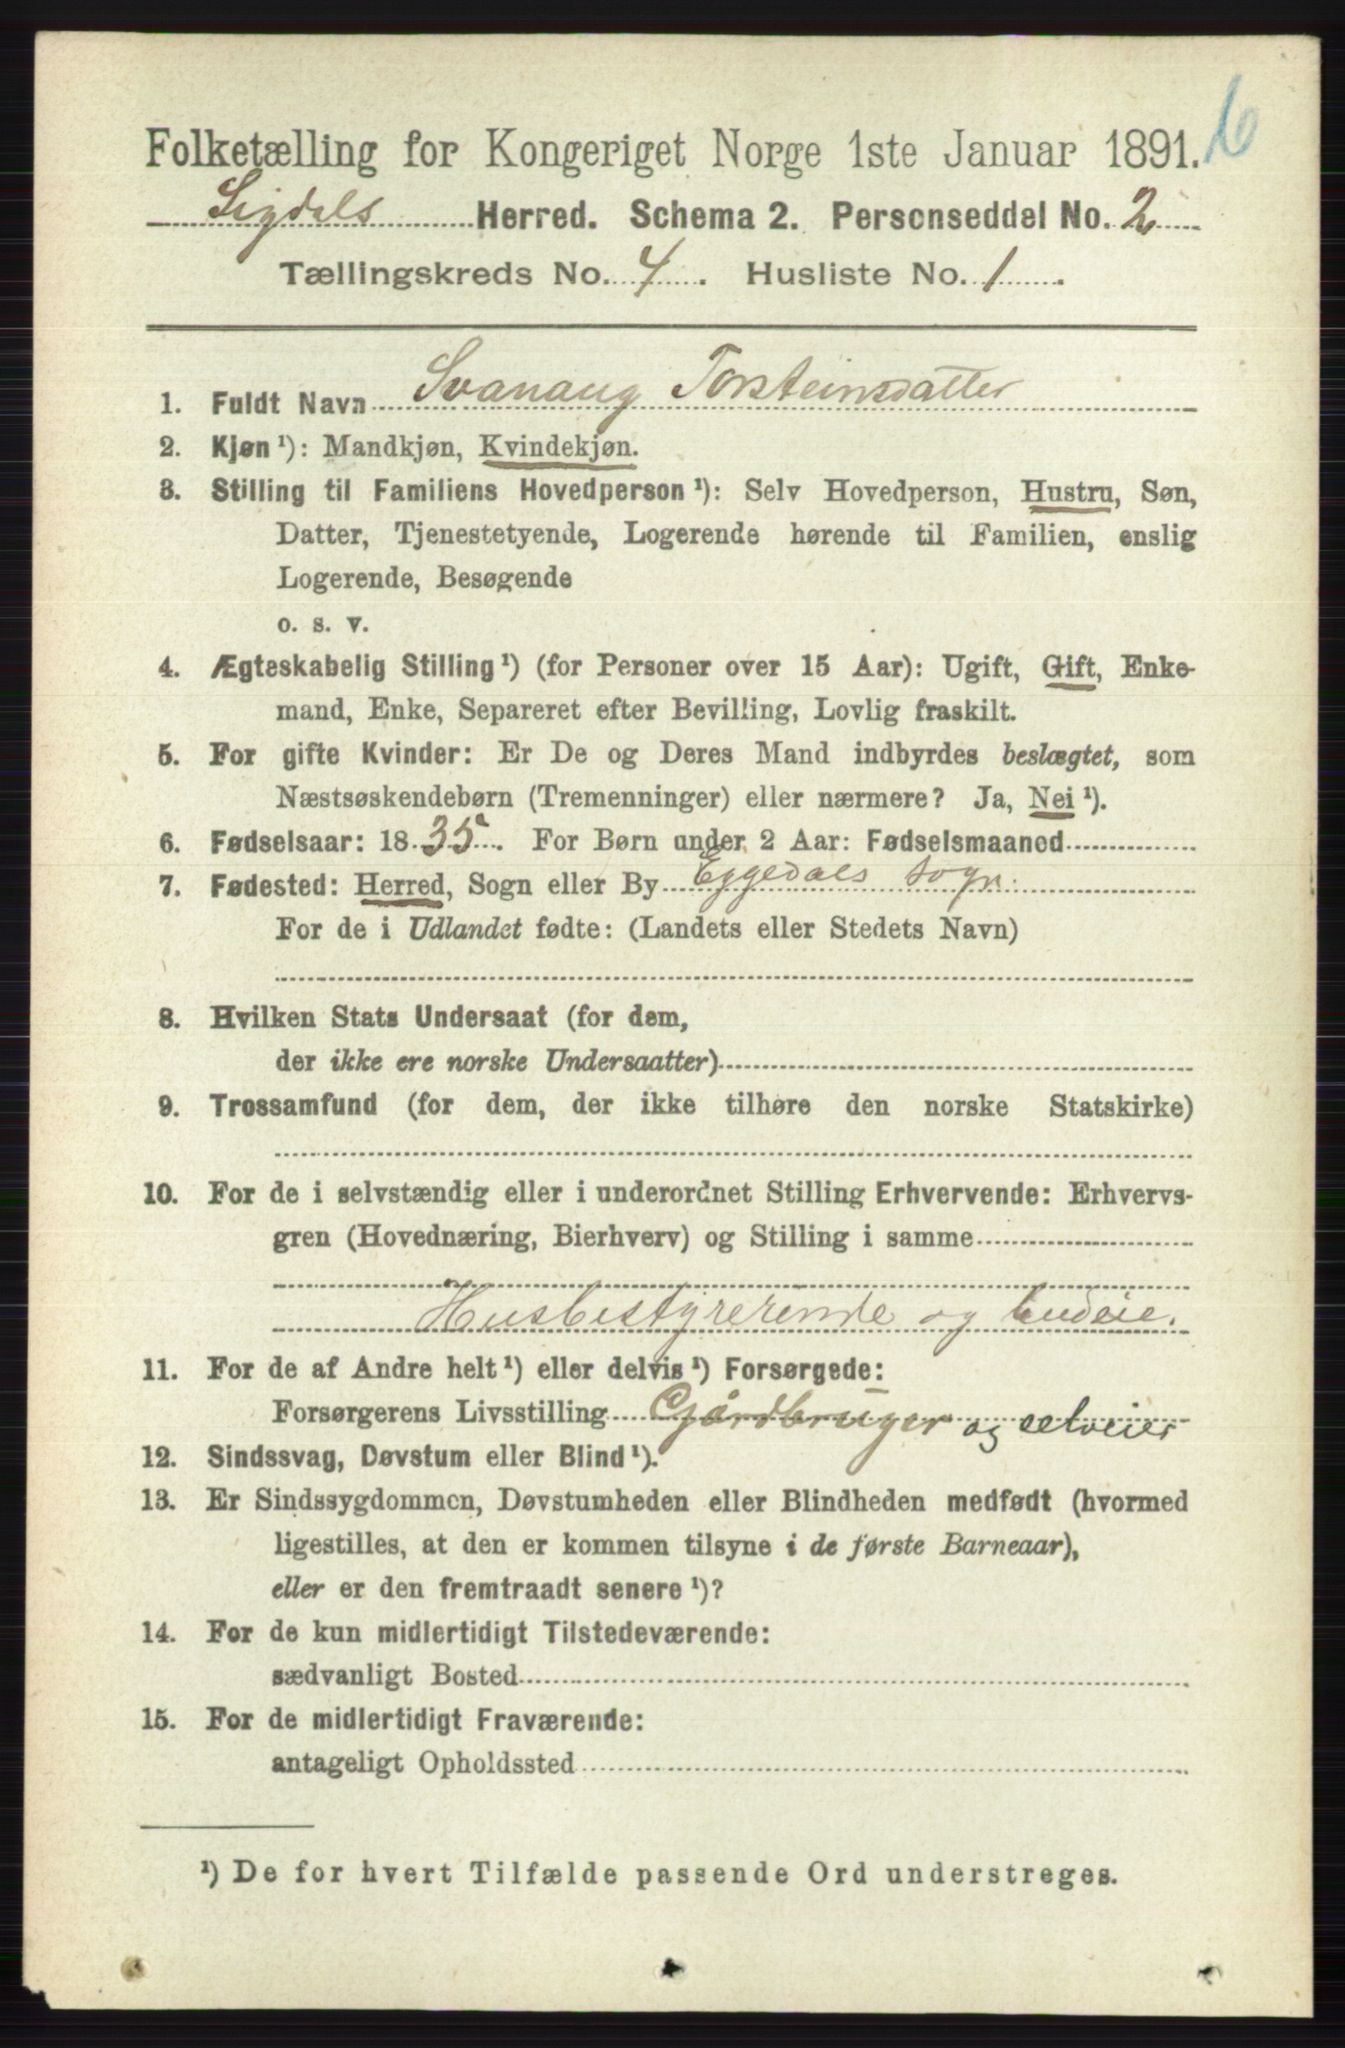 6
Folketælling for Kongeriget Norge 1ste Januar 1891.
Sigdals Herred. Schema 2. Personseddel No. 2
Tællingskreds No. 4. Husliste No. 1.
1. Fuldt Navn Svanaug Torsteinsdatter
2. Kjøn ¹): Mandkjøn, Kvindekjøn.
3. Stilling til Familiens Hovedperson ¹): Selv Hovedperson, Hustru, Søn,
Datter, Tjenestetyende, Logerende hørende til Familien, enslig
Logerende, Besøgende
o. s. v.
4. Ægteskabelig Stilling ¹) (for Personer over 15 Aar): Ugift, Gift, Enke-
mand, Enke, Separeret efter Bevilling, Lovlig fraskilt.
5. For gifte Kvinder: Er De og Deres Mand indbyrdes beslægtet, som
Næstsøskendebørn (Tremenninger) eller nærmere? Ja, Nei ¹).
6. Fødselsaar: 1835. For Børn under 2 Aar: Fødselsmaaned
7. Fødested: Herred, Sogn eller By Eggedals sogn.
For de i Udlandet fødte: (Landets eller Stedets Navn)
8. Hvilken Stats Undersaat (for dem,
der ikke ere norske Undersaatter)
9. Trossamfund (for dem, der ikke tilhøre den norske Statskirke)
10. For de i selvstændig eller i underordnet Stilling Erhvervende: Erhvervs-
gren (Hovednæring, Bierhverv) og Stilling i samme
Husbestyrerende og budeie.
11. For de af Andre helt ¹) eller delvis ¹) Forsørgede:
Forsørgerens Livsstilling Gårdbruger og selveier
12. Sindssvag, Døvstum eller Blind ¹).
13. Er Sindssygdommen, Døvstumheden eller Blindheden medfødt (hvormed
ligestilles, at den er kommen tilsyne i de første Barneaar),
eller er den fremtraadt senere ¹)?
14. For de kun midlertidigt Tilstedeværende:
sædvanligt Bosted
15. For de midlertidigt Fraværende:
antageligt Opholdssted
¹) De for hvert Tilfælde passende Ord understreges.